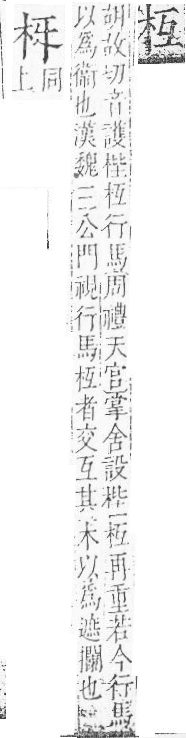 枑
胡故切音護梐枑行馬周禮天官掌舍設梐枑再重若今行馬
以為衞也漢魏三公門視行馬枑者交互其木以為遮攔也
枒
同上